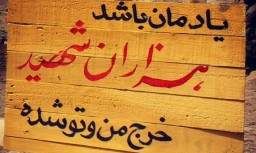 یادمان باشد
هزاران شهید
خرج من و تو شده